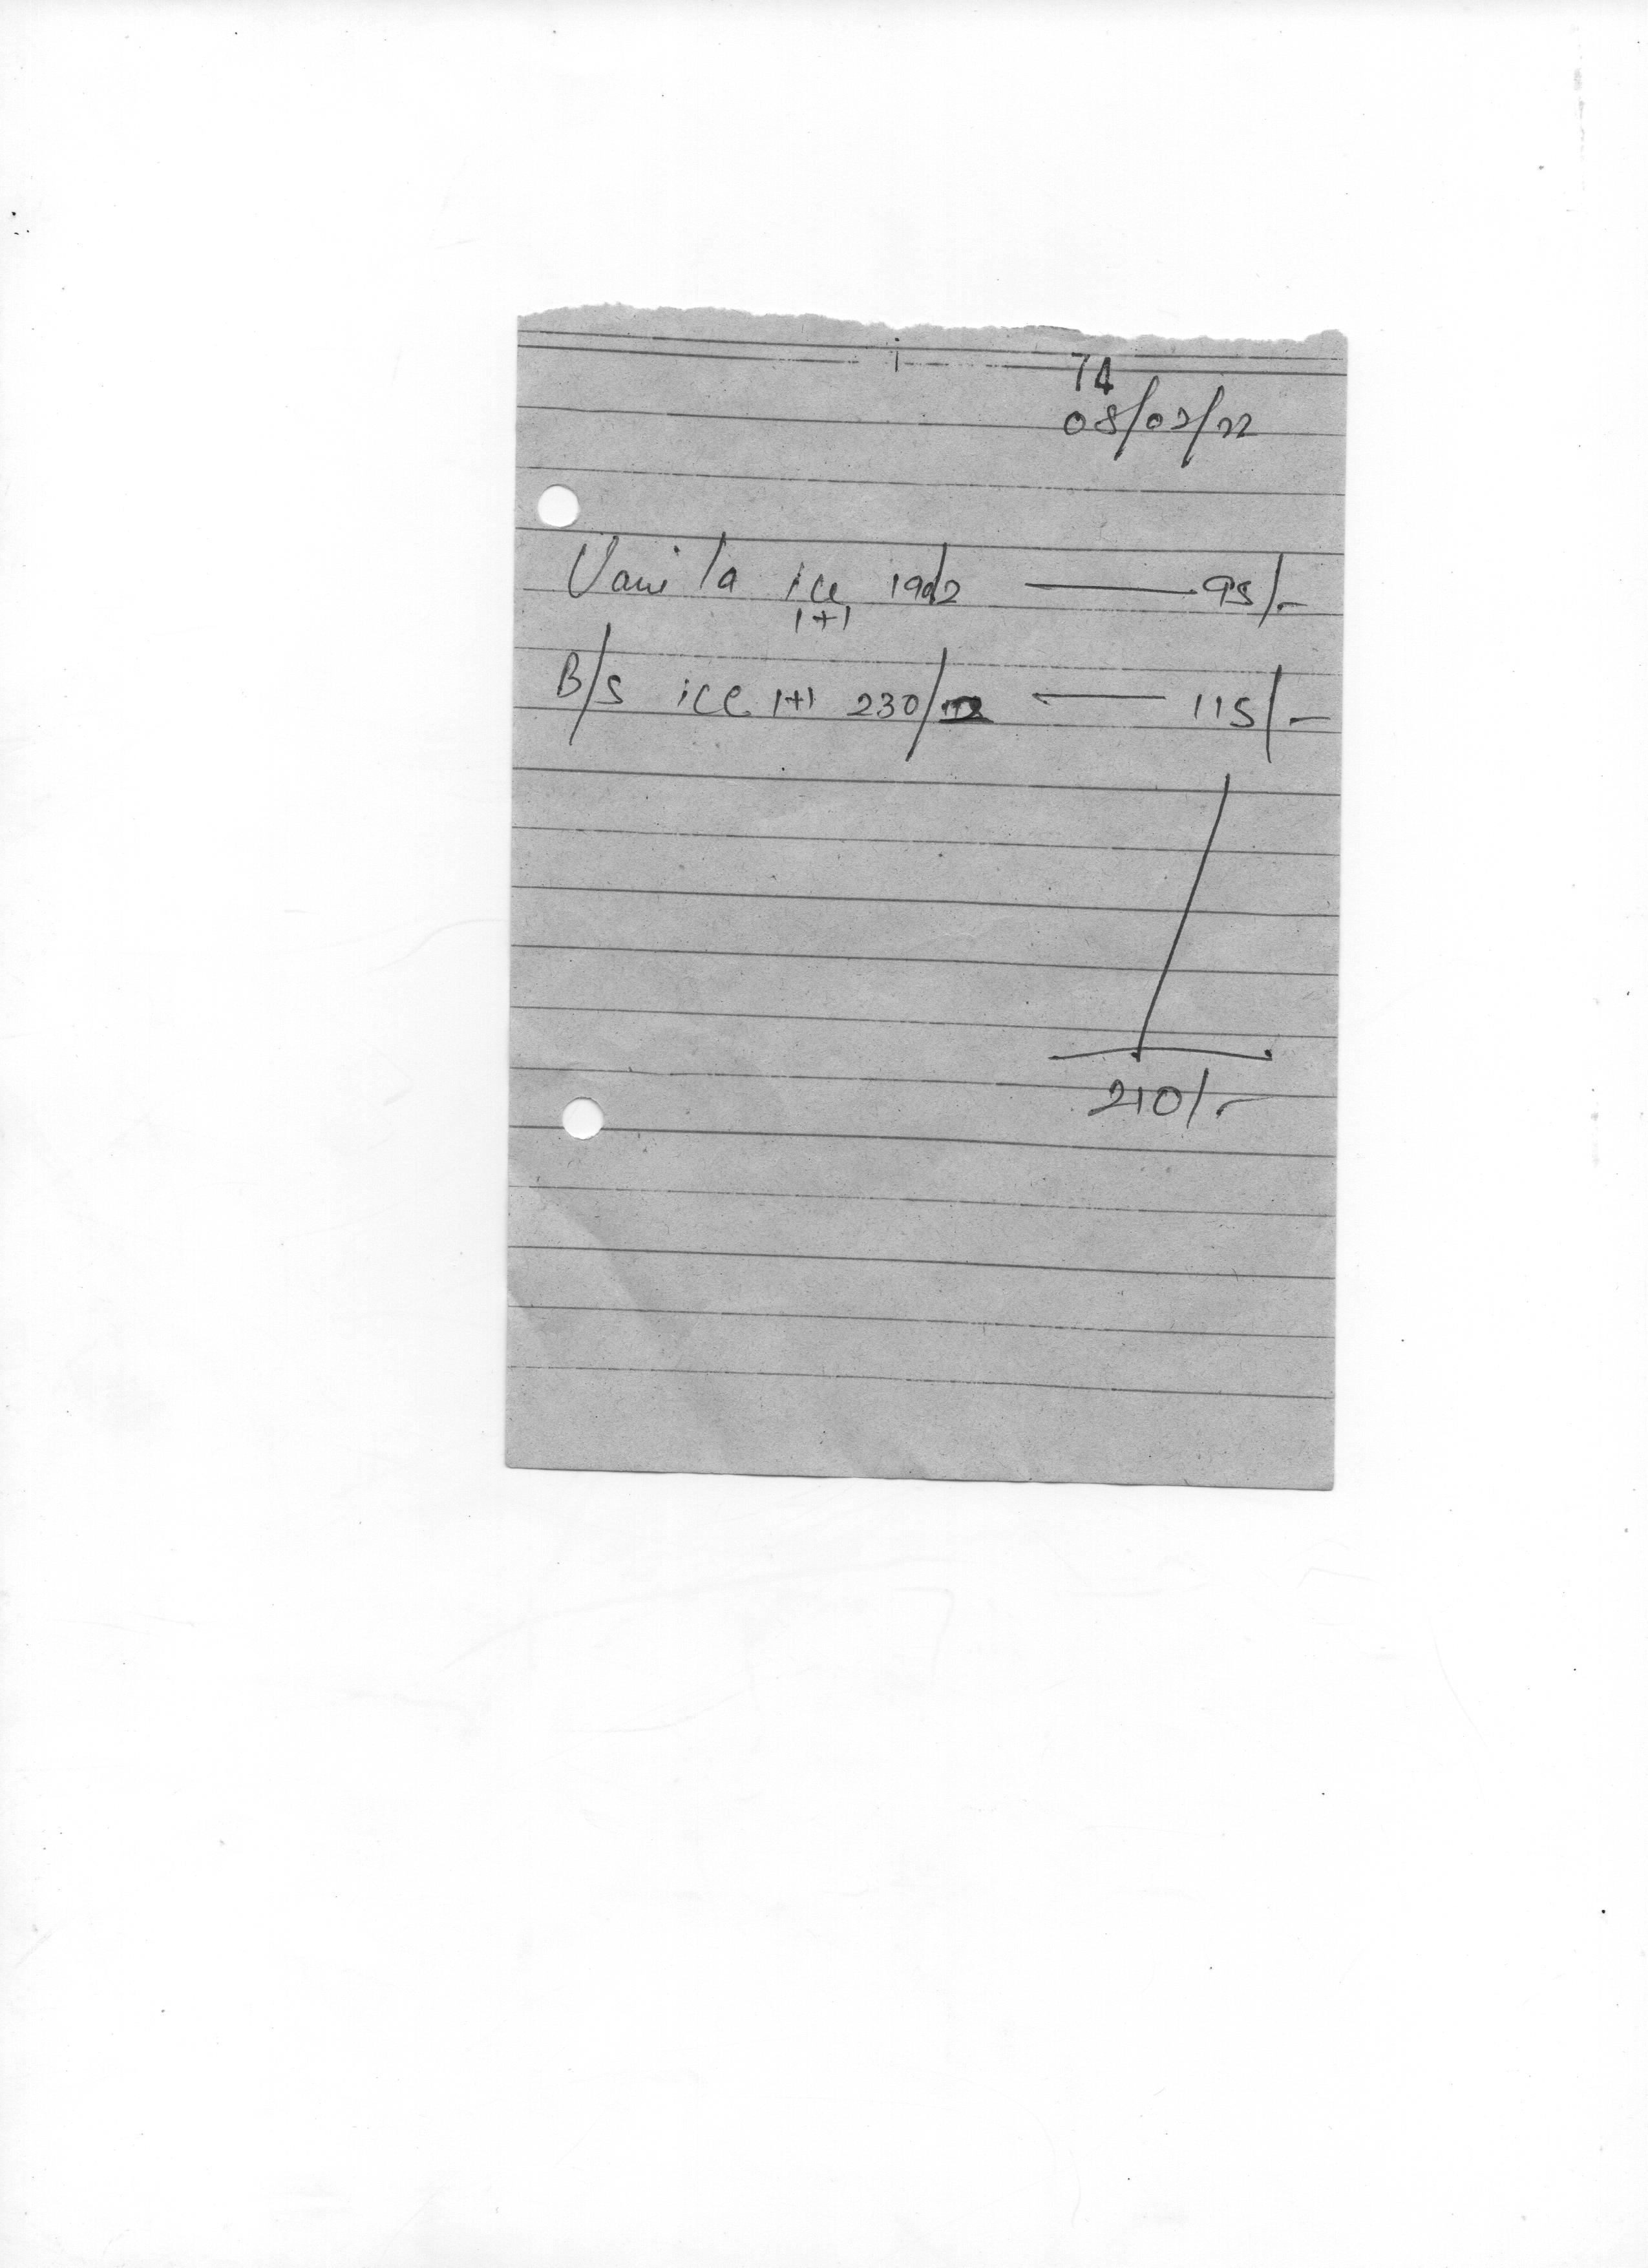 74
08/02/22
Vanila ice 190/2 — 95/-
1+1
B/s ice 1+1 230/2 — 115/-
210/-